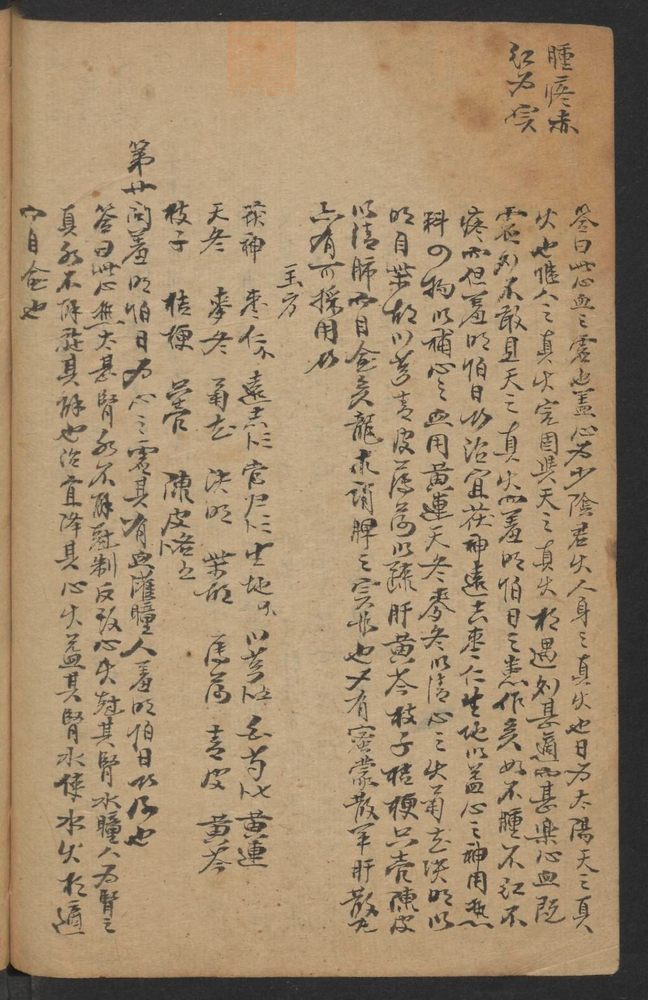 腫疼赤
紅为实
答曰此心血之虚也盖心为少陰君火人身之真火也日为太陽天之真
火也惟人之真火完固與天之真火相遇則甚適而甚樂心血既
虚則不敢且天之真火而羞明怕日之患作矣如不腫不紅不
疼而但羞明怕日治宜茯神遠志枣仁生地以益心之神用
科以補心之血用黄連天冬麥冬以清心之火草決明以
明目柴胡川芎青皮薄荷以疏肝黄芩枝子桔梗只壳陳皮
以清肺而目全矣龍求諸脾之实也又有蜜蒙散羊肝散
亦有可採用
主方
茯神 枣仁 遠志 當归 生地 川芎 白芍 黄連
天冬 麥冬 草 決明 柴胡 薄荷 青皮 黄芩
枝子 桔梗 陳皮
第廿問羞明怕日为心之虚其有血灌瞳人羞明怕日何也
答曰此心热太甚腎水不能尅制反致心火尅其腎水瞳人为腎之
真水不能其也治宜降其心火益其腎水使水火相適
而目全也